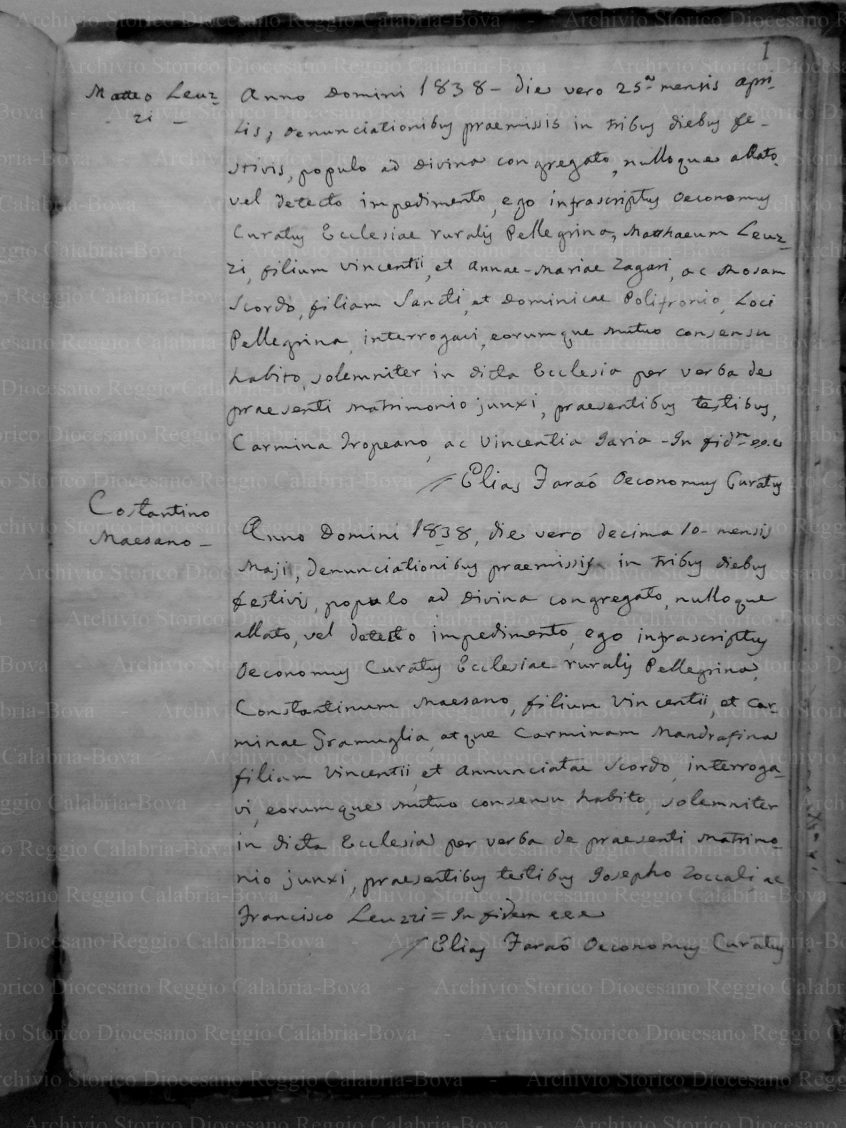 1
Matteo Leuz-
zi -
Anno Domini 1838 - die vero 25.a mensis apri-
lis, denunciationibus praemissis in tribus diebus fe-
stivis, populo ad Divina congregato, nulloque allato,
vel detecto impedimento, ego infrascriptus Oeconomus
Curatus Ecclesiae ruralis Pellegrina, Matthaeum Leuz-
zi, filium Vincentii, et Annae-Mariae Zagari, ac Rosam
Scordò, filiam Sancti, et Dominicae Polifronio, Loci
Pellegrina, interrogavi, eorumque mutuo consensu
habito, solemniter in dicta Ecclesia per verba de
praesenti Matrimonio junxi, praesentibus testibus,
Carmina Tropeano, ac Vincentia Iaria - In fid.m e e e
Elias Faraò Oeconomus Curatus
Costantino
Maesano -
Anno Domini 1838, die vero decima 10 - mensis
Maji, denunciationibus praemissis in tribus diebus
festivis, populo ad Divina congregato, nulloque
allato, vel detecto impedimento, ego infrascriptus
Oeconomus Curatus Ecclesiae ruralis Pellegrina,
Constantinum Maesano, filium Vincentii, et Car-
minae Gramuglia, atque Carminam Mandrafina
filiam Vincentii, et Annunciatae Scordo, interroga-
vi, eorumque mutuo consensu habito, solemniter
in dicta Ecclesia per verba de praesenti Matrimo-
nio junxi, praesentibus testibus Josepho Zoccali, ac
Francisco Leuzzi = In fidem e e e
Elias Faraò Oeconomus Curatus
Archivio Storico Diocesano Reggio Calabria-Bova